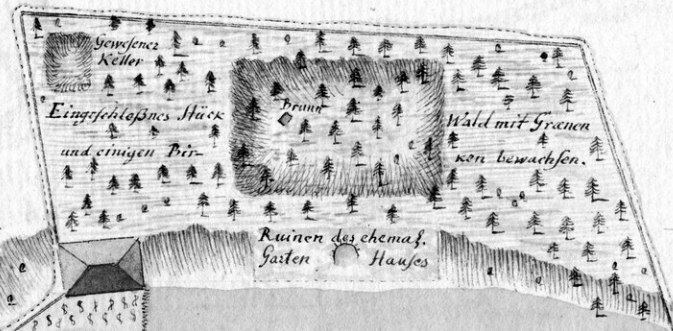 Gewesener
Keller
Brunn
Eingeschloßnes Stück Wald mit Grænen
und einigen Bir- ken bewachsen.
Ruinen des ehemal.
Garten Hauses